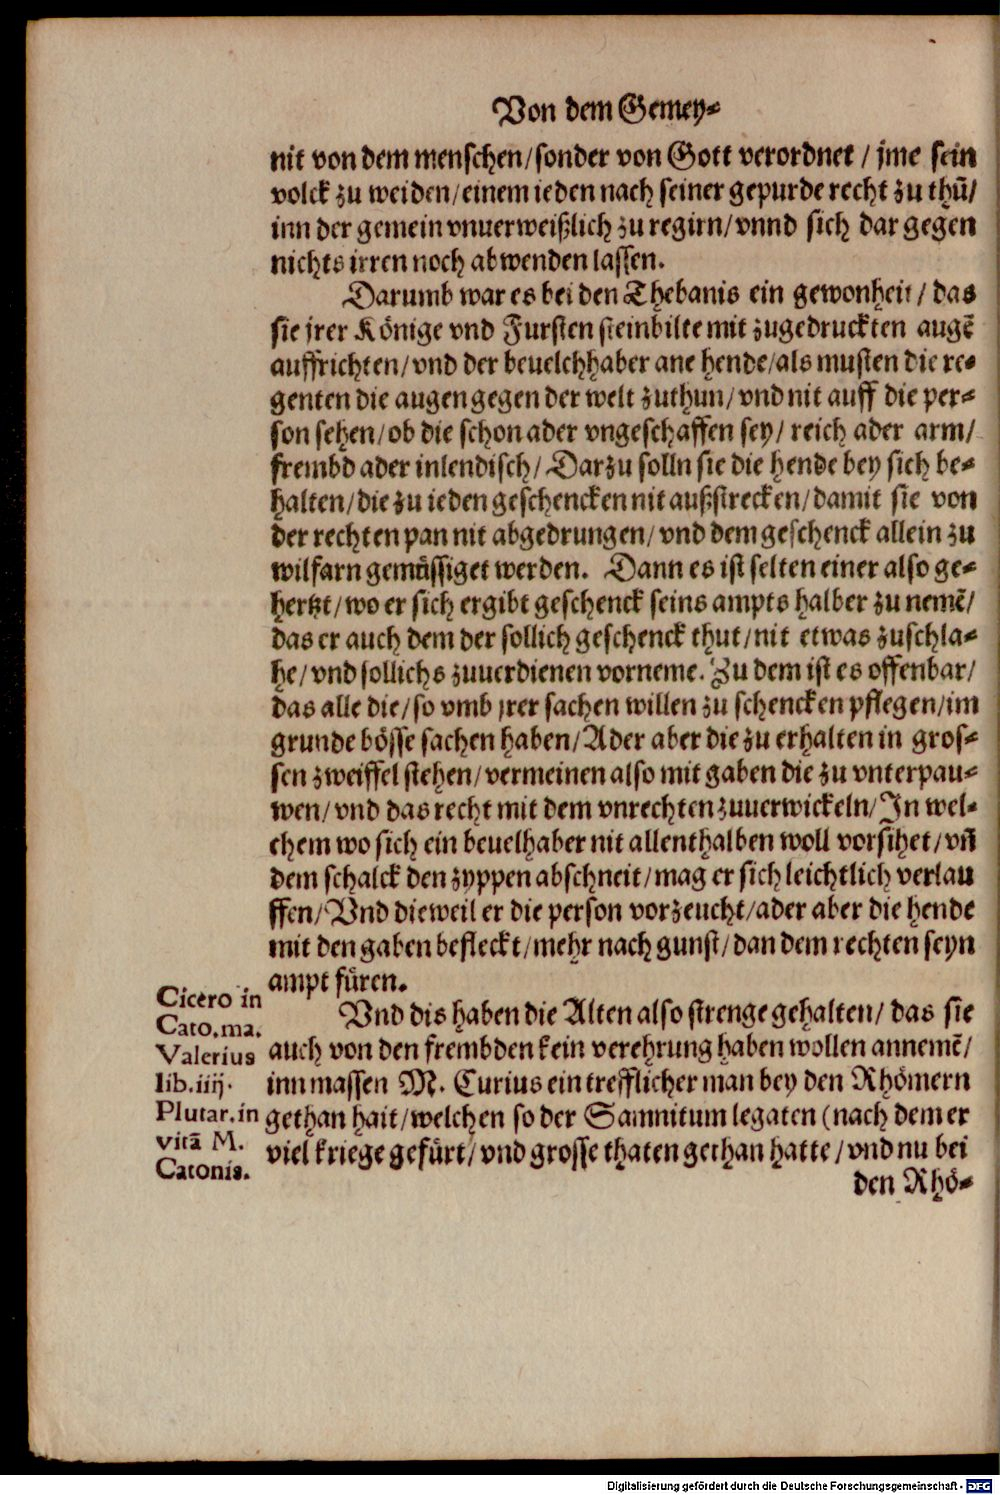 Von dem Gemey⸗
nit von dem menschen/sonder von Gott verordnet / jme sein
volck zu weiden/einem ieden nach seiner gepurde recht zu thũ/
inn der gemein vnuerweißlich zu regirn/vnnd sich dar gegen
nichts irren noch abwenden lassen.
Darumb war es bei den Thebanis ein gewonheit / das
sie jrer Könige vnd Fursten steinbilte mit zugedruckten augẽ
auffrichten/vnd der beuelchhaber ane hende/als musten die re⸗
genten die augen gegen der welt zuthun/vnd nit auff die per⸗
son sehen/ob die schon ader vngeschaffen sey/ reich ader arm/
frembd ader inlendisch/ Darzu solln sie die hende bey sich be⸗
halten/die zu ieden geschencken nit außstrecken/damit sie von
der rechten pan nit abgedrungen/vnd dem geschenck allein zu
wilfarn gemässiget werden. Dann es ist selten einer also ge⸗
hertzt/wo er sich ergibt geschenck seins ampts halber zu nemẽ/
das er auch dem der sollich geschenck thut/nit etwas zuschla⸗
he/vnd sollichs zuuerdienen vorneme. Zu dem ist es offenbar/
das alle die/so vmb jrer sachen willen zu schencken pflegen/im
grunde bösse sachen haben/Ader aber die zu erhalten in gros⸗
sen zweiffel stehen/vermeinen also mit gaben die zu vnterpau⸗
wen/vnd das recht mit dem vnrechten zuuerwickeln/In wel⸗
chem wo sich ein beuelhaber nit allenthalben woll vorsihet/vñ
dem schalck den zyppen abschneit/mag er sich leichtlich verlau
ffen/Vnd dieweil er die person vorzeucht/ader aber die hende
mit den gaben befleckt/mehr nach gunst/dan dem rechten seyn
ampt füren.
Vnd dis haben die Alten also strenge gehalten/ das sie
auch von den frembden kein verehrung haben wollen annemẽ/
inn massen M. Curius ein trefflicher man bey den Rhömern
gethan hait/welchen so der Samnitum legaten (nach dem er
viel kriege gefürt/vnd grosse thaten gethan hatte/vnd nu bei
den Rhö⸗
Cicero in
Cato.ma.
Valerius
lib.iiij.
Plutar.in
vitã M.
Catonis.
Digitalisierung gefördert durch die Deutsche Forschungsgemeinschaft - DFG